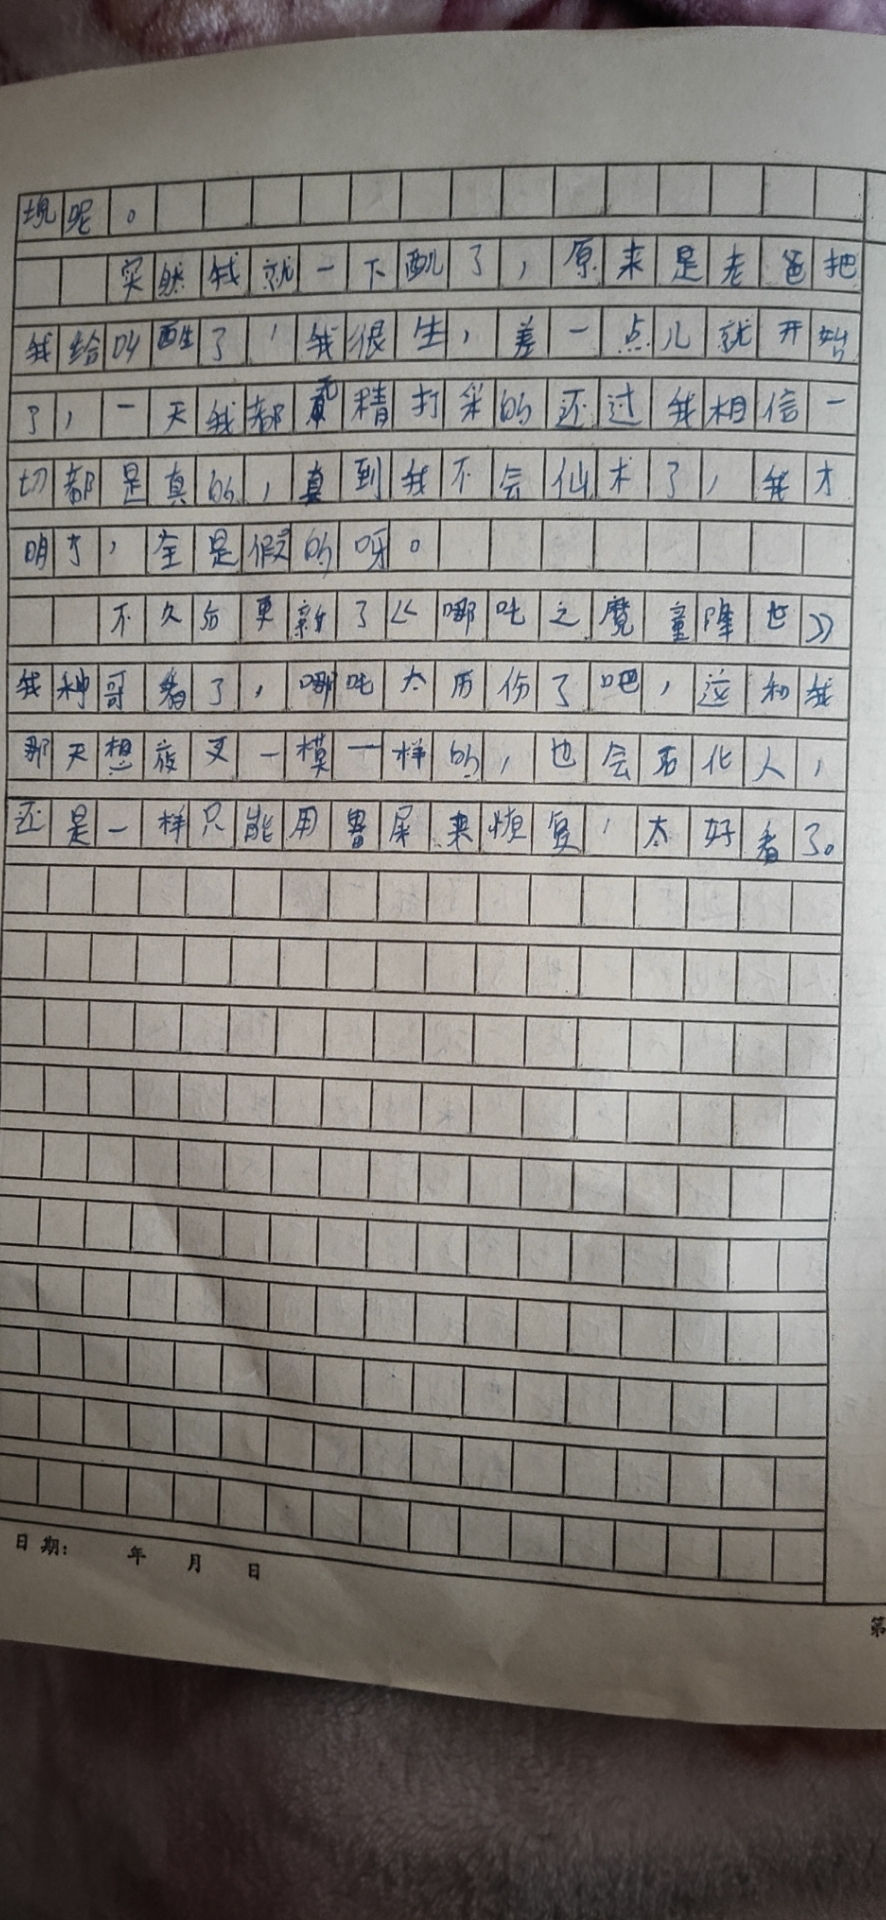 块呢。
突然我就一下醒了，原来是老爸把
我给叫醒了，我很生，差一点儿就开始
了，一天我都无精打采的还过我相信一
切都是真的，真到我不会仙术了，我才
明才，全是假的呀。
不久后更新了《哪吒之魔童降世》
我种哥看了，哪吒太历份了吧，这和我
那天想夜叉一模一样的，也会石化人，
还是一样只能用鼻屎来恒复，太好看了。
日期： 年 月 日
第